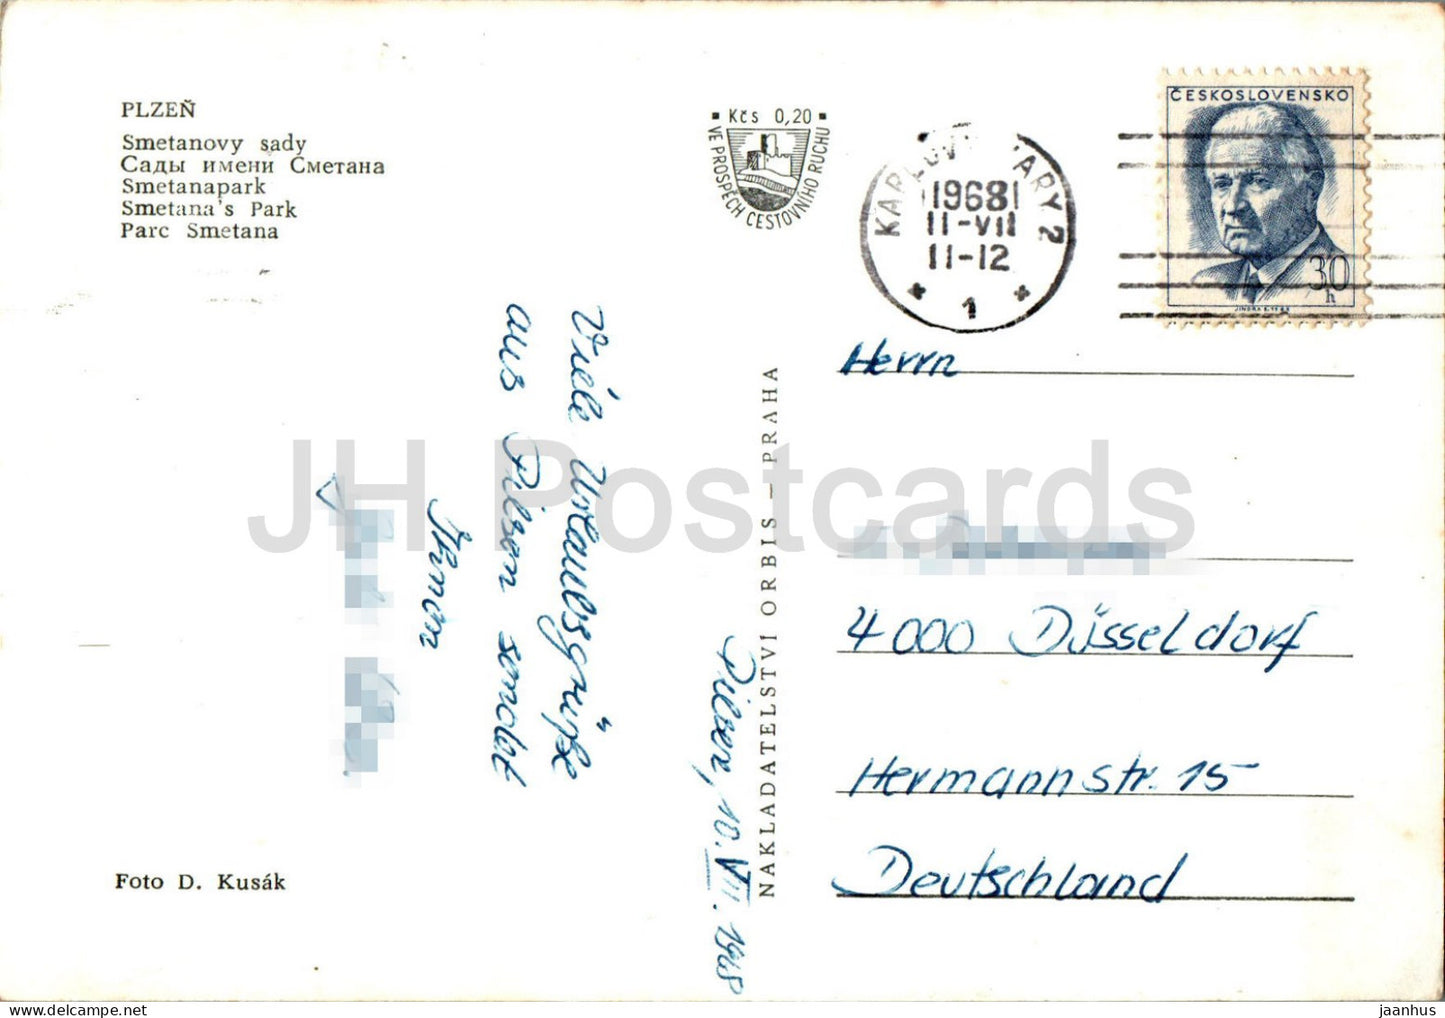 PLZEŇ
Smetanovy sady
Сады имени Сметана
Smetanapark
Smetana's Park
Parc Smetana
Kčs 0,20
VE PROSPĚCH CESTOVNÍHO RUCHU
KARLOVY VARY 2
1968
11-VII
11-12
1
ČESKOSLOVENSKO
30
h
Viele Urlaubsgrüße
aus Pilsen sendet
Ihnen
Pilsen, 10.VII.1968
NAKLADATELSTVÍ ORBIS — PRAHA
Herrn
4000 Düsseldorf
Hermannstr. 15
Deutschland
Foto D. Kusák
JH Postcards
https://www.delcampe.net
jaanhus